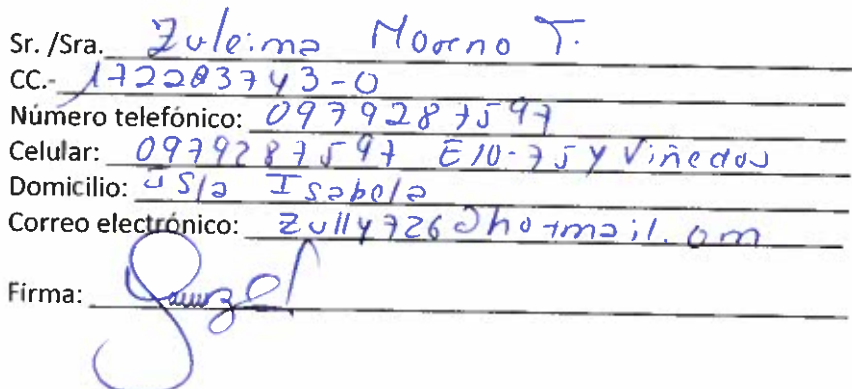 Sr. /Sra. Zuleima Moreno T.
CC.- 172283743-0
Número telefónico: 0979287597
Celular: 0979287597 E10-75 y Viñedos
Domicilio: Isla Isabela
Correo electrónico: zully726@hotmail.om
Firma: